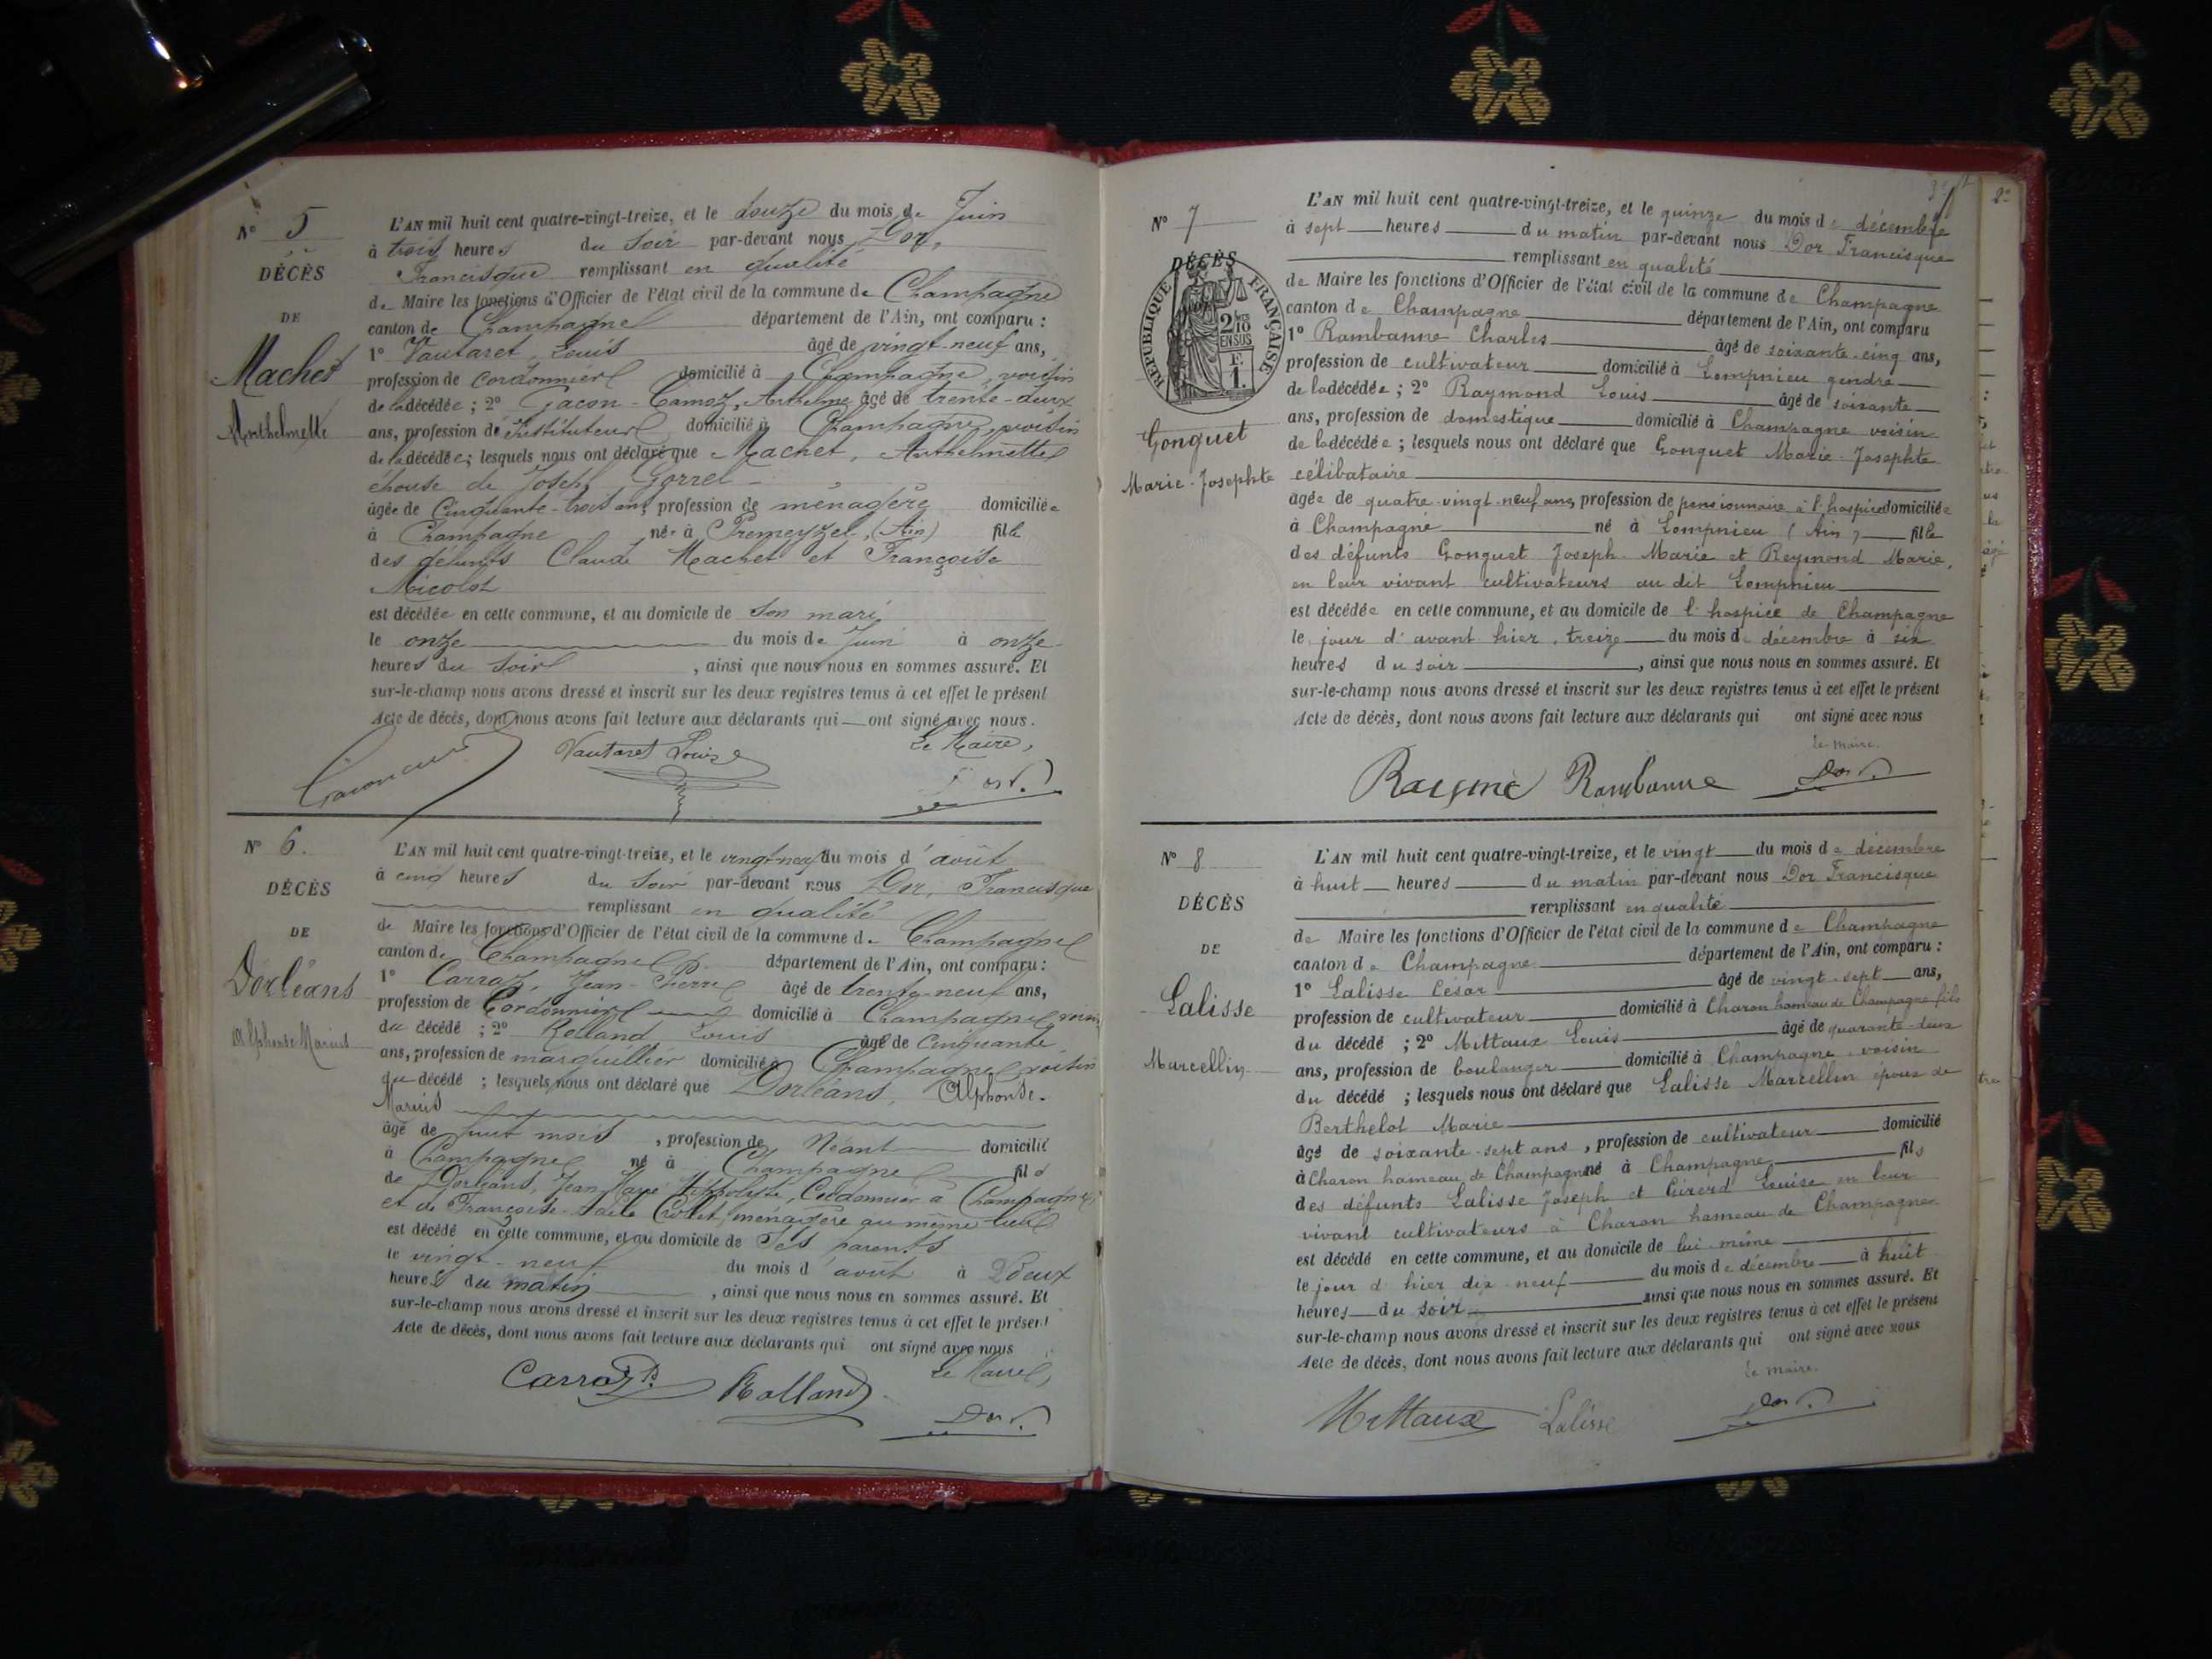 N° 5
DÉCÈS
DE
Machet
Anthelmette
L'AN mil huit cent quatre-vingt-treize, et le douze du mois de Juin
à trois heures du Soir par-devant nous Dor,
Francisque remplissant en qualité
de Maire les fonctions d'Officier de l'état civil de la commune de Champagne
canton de Champagne département de l'Ain, ont comparu :
1° Vautaret Louis âgé de vingt-neuf ans,
profession de Cordonnier domicilié à Champagne, voisin
de la décédée ; 2° Jacon-Camoz, Anthelme âgé de trente-deux
ans, profession de Instituteur domicilié à Champagne, voisin
de la décédée ; lesquels nous ont déclaré que Machet, Anthelmette
épouse de Joseph Gorrel
âgée de Cinquante-trois ans, profession de ménagère domiciliée
à Champagne née à Premeyzel, (Ain) fille
des défunts Claude Machet et Françoise
Micolot
est décédée en cette commune, et au domicile de son mari
le onze du mois de Juin à onze
heures du Soir, ainsi que nous nous en sommes assuré. Et
sur-le-champ nous avons dressé et inscrit sur les deux registres tenus à cet effet le présent
Acte de décès, dont nous avons fait lecture aux déclarants qui ont signé avec nous.
Le Maire,
Vautaret Louis
Dor
N° 6.
DÉCÈS
DE
Dorléans
Alphonse Marius
L'AN mil huit cent quatre-vingt-treize, et le vingt-neuf du mois d'août
à cinq heures du Soir par-devant nous Dor, Francisque
remplissant en qualité
de Maire les fonctions d'Officier de l'état civil de la commune de Champagne
canton de Champagne département de l'Ain, ont comparu :
1° Carraz, Jean-Pierre âgé de trente-neuf ans,
profession de Cordonnier domicilié à Champagne, voisin
du décédé ; 2° Rolland Louis âgé de Cinquante
ans, profession de marguillier domicilié à Champagne, voisin
du décédé ; lesquels nous ont déclaré que Dorléans, Alphonse-
Marius
âgé de huit mois, profession de Néant domicilié
à Champagne né à Champagne fils
de Dorléans, Jean-Marie Hippolyte, Cordonnier à Champagne,
et de Françoise Crollet, ménagère au même lieu
est décédé en cette commune, et au domicile de Ses parents
le vingt-neuf du mois d'août à Deux
heures du matin, ainsi que nous nous en sommes assuré. Et
sur-le-champ nous avons dressé et inscrit sur les deux registres tenus à cet effet le présent
Acte de décès, dont nous avons fait lecture aux déclarants qui ont signé avec nous
Le Maire,
Carraz Rolland
Dor
N° 7
DÉCÈS
RÉPUBLIQUE FRANÇAISE
2/10 EN SUS
1 F.
Gonguet
Marie-Josephte
L'AN mil huit cent quatre-vingt-treize, et le quinze du mois de décembre
à sept heures du matin par-devant nous Dor Francisque
remplissant en qualité
de Maire les fonctions d'Officier de l'état civil de la commune de Champagne
canton de Champagne département de l'Ain, ont comparu
1° Rambanne Charles âgé de soixante-cinq ans,
profession de cultivateur domicilié à Lompnieu gendre
de la décédée ; 2° Raymond Louis âgé de soixante
ans, profession de domestique domicilié à Champagne voisin
de la décédée ; lesquels nous ont déclaré que Gonguet Marie-Josephte
célibataire
âgée de quatre-vingt-neuf ans, profession de pensionnaire à l'hospice domiciliée
à Champagne né à Lompnieu (Ain) fille
des défunts Gonguet Joseph-Marie et Reymond Marie,
en leur vivant cultivateurs au dit Lompnieu
est décédée en cette commune, et au domicile de l'hospice de Champagne
le jour d'avant-hier, treize du mois de décembre à six
heures du soir, ainsi que nous nous en sommes assuré. Et
sur-le-champ nous avons dressé et inscrit sur les deux registres tenus à cet effet le présent
Acte de décès, dont nous avons fait lecture aux déclarants qui ont signé avec nous
le maire.
Raymé Rambanne Dor
N° 8
DÉCÈS
DE
Lalisse
Marcellin
L'AN mil huit cent quatre-vingt-treize, et le vingt du mois de décembre
à huit heures du matin par-devant nous Dor Francisque
remplissant en qualité
de Maire les fonctions d'Officier de l'état civil de la commune de Champagne
canton de Champagne département de l'Ain, ont comparu :
1° Lalisse César âgé de vingt-sept ans,
profession de cultivateur domicilié à Charon hameau de Champagne fils
du décédé ; 2° Mittaux Louis âgé de quarante-deux
ans, profession de boulanger domicilié à Champagne voisin
du décédé ; lesquels nous ont déclaré que Lalisse Marcellin époux de
Berthelot Marie
âgé de soixante-sept ans, profession de cultivateur domicilié
à Charon hameau de Champagne né à Champagne fils
des défunts Lalisse Joseph et Girerd Louise en leur
vivant cultivateurs à Charon hameau de Champagne
est décédé en cette commune, et au domicile de lui-même
le jour d'hier dix-neuf du mois de décembre à huit
heures du soir ainsi que nous nous en sommes assuré. Et
sur-le-champ nous avons dressé et inscrit sur les deux registres tenus à cet effet le présent
Acte de décès, dont nous avons fait lecture aux déclarants qui ont signé avec nous
le maire.
Mittaux Lalisse Dor